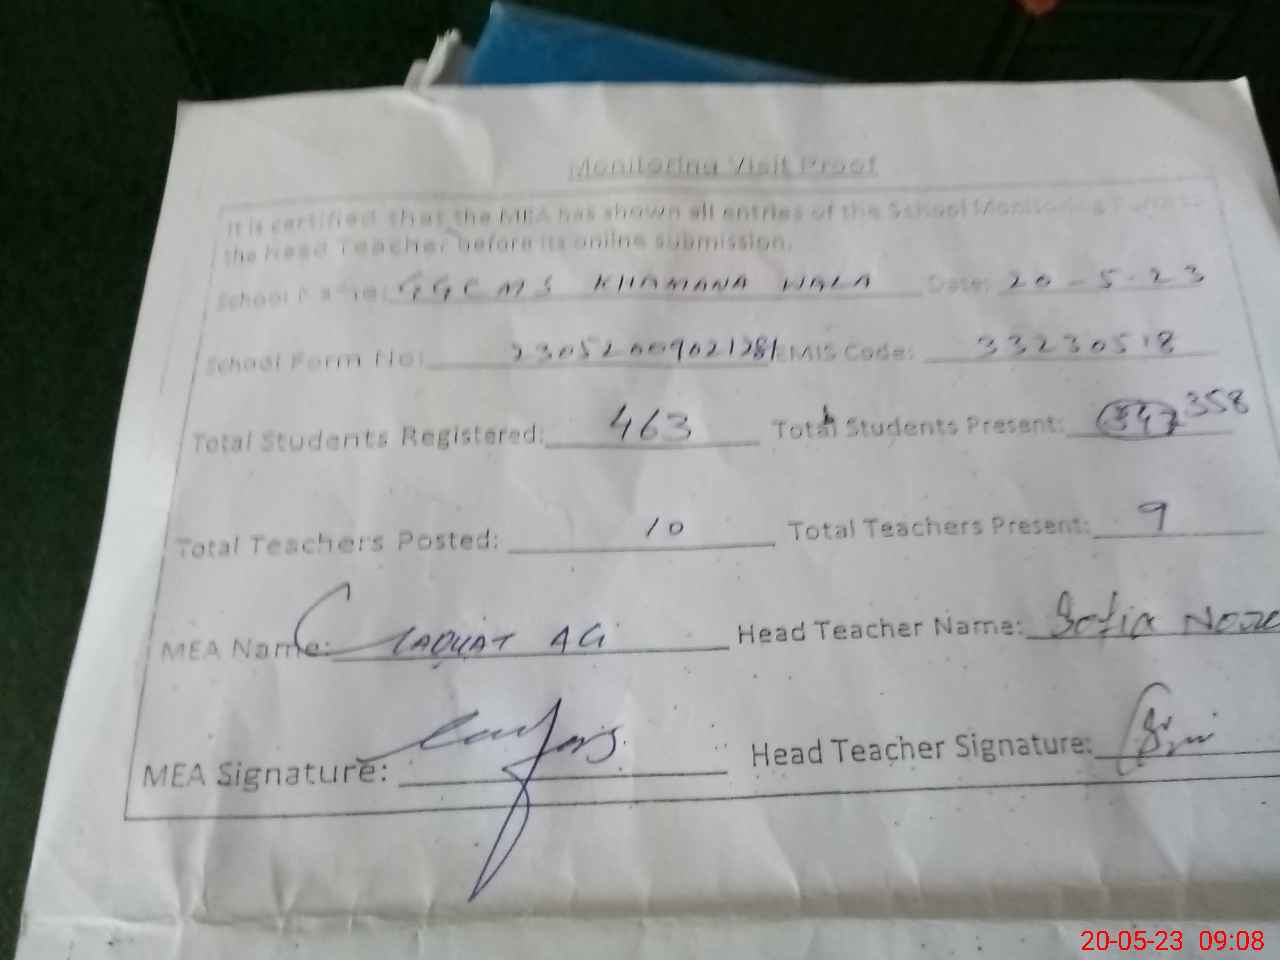 Monitoring Visit Proof
It is certified that the MEA has shown all entries of the School Monitoring Form to
the Head Teacher before its online submission.
School Name: GGCMS KHAMANA WALA Date: 20-5-23
School Form No: 23052009021281 EMIS Code: 33230518
Total Students Registered: 463 Total Students Present: 347 358
Total Teachers Posted: 10 Total Teachers Present: 9
MEA Name: LIAQUAT ALI Head Teacher Name: Sofia
MEA Signature: Head Teacher Signature:
20-05-23 09:08